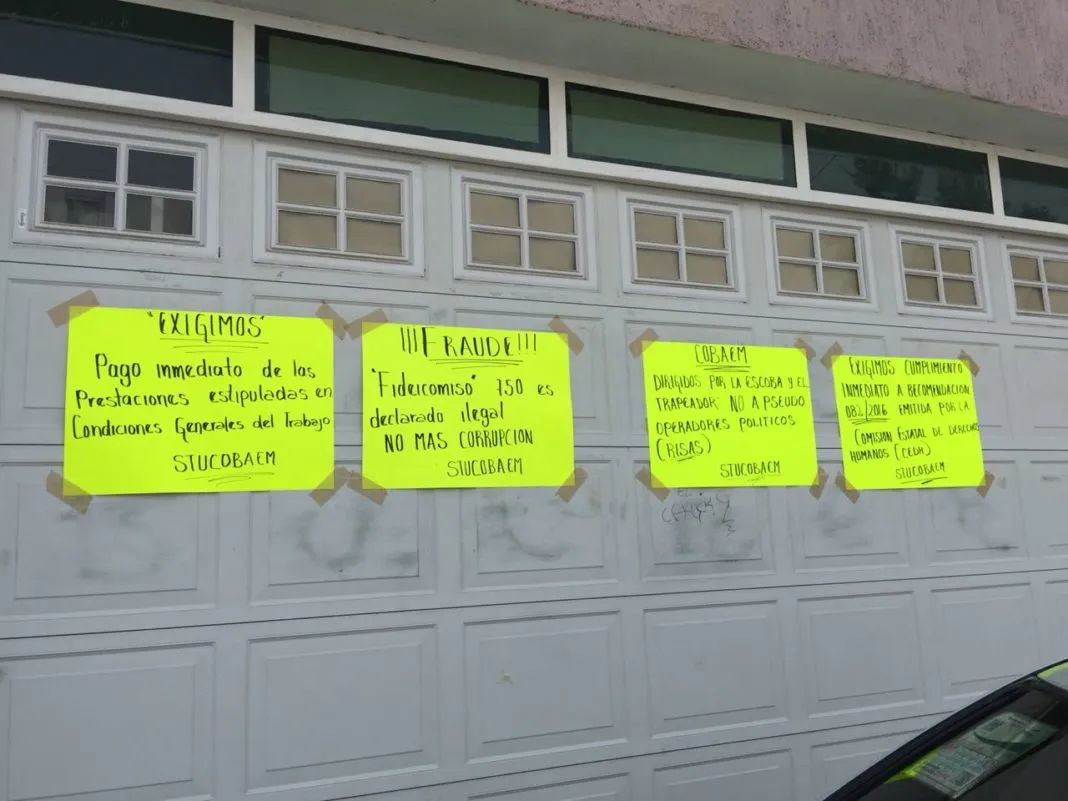 "EXIGIMOS"
Pago inmediato de las
Prestaciones estipuladas en
Condiciones Generales del Trabajo
STUCOBAEM
¡¡¡FRAUDE!!!
"Fideicomiso" 750 es
declarado ilegal
NO MAS CORRUPCION
STUCOBAEM
COBAEM
DIRIGIDOS POR LA ESCOBA Y EL
TRAPEADOR NO A PSEUDO
OPERADORES POLITICOS
(RISAS)
STUCOBAEM
EXIGIMOS CUMPLIMIENTO
INMEDIATO A RECOMENDACION
082/2016 EMITIDA POR LA
COMISION ESTATAL DE DERECHOS
HUMANOS (CEDH)
STUCOBAEM